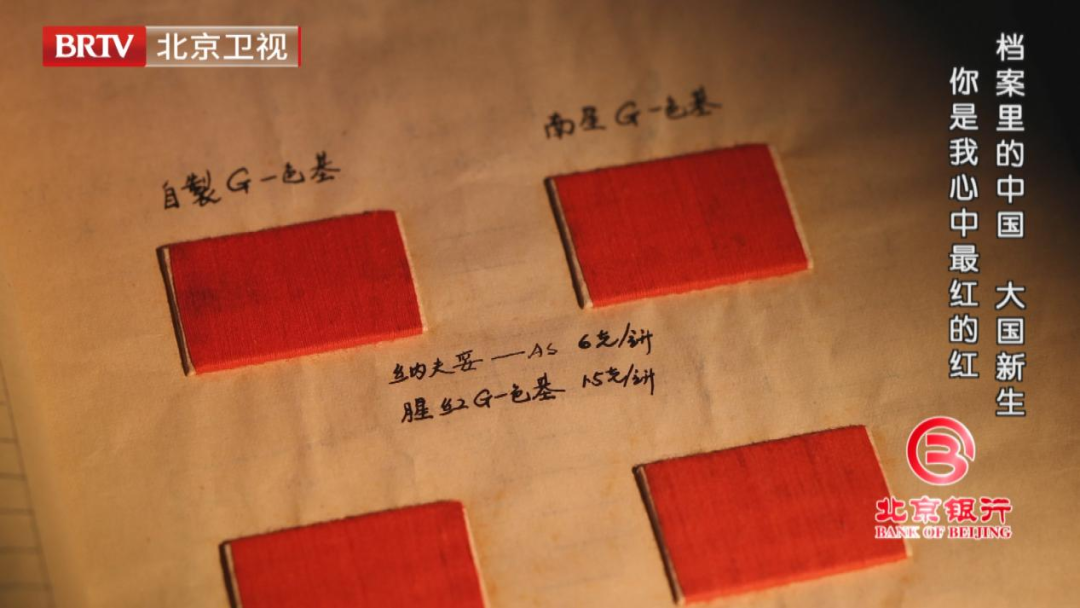 BRTV 北京卫视
档案里的中国 大国新生
你是我心中最红的红
自製G一色基
南星G一色基
纳夫妥——AS 6克/升
腥红G一色基 15克/升
北京银行
BANK OF BEIJING